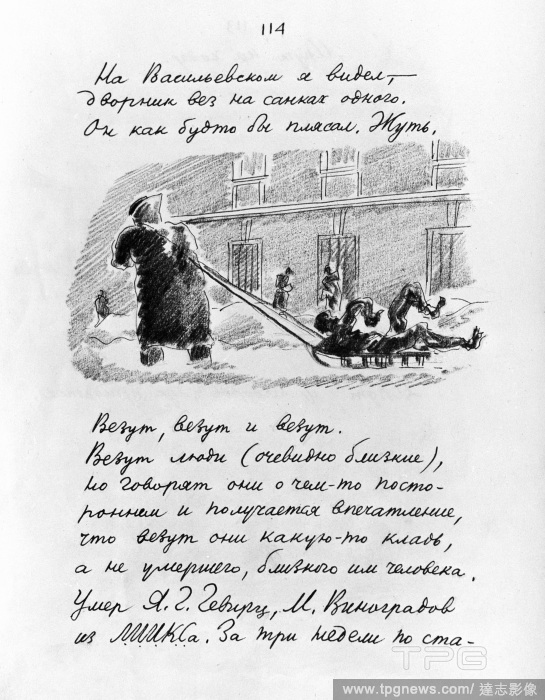 114
На Васильевском я видел, —
дворник вез на санках одного.
Он как будто бы плясал. Жуть.
Везут, везут и везут.
Везут люди (очевидно близкие),
но говорят они о чем-то посто-
роннем и получается впечатление,
что везут они какую-то кладь,
а не умершего, близкого им человека.
Умер Я. Г. Гевирц, М. Виноградов
из ЛИИКСа. За три недели по ста-
TPG
www.tpgnews.com/達志影像